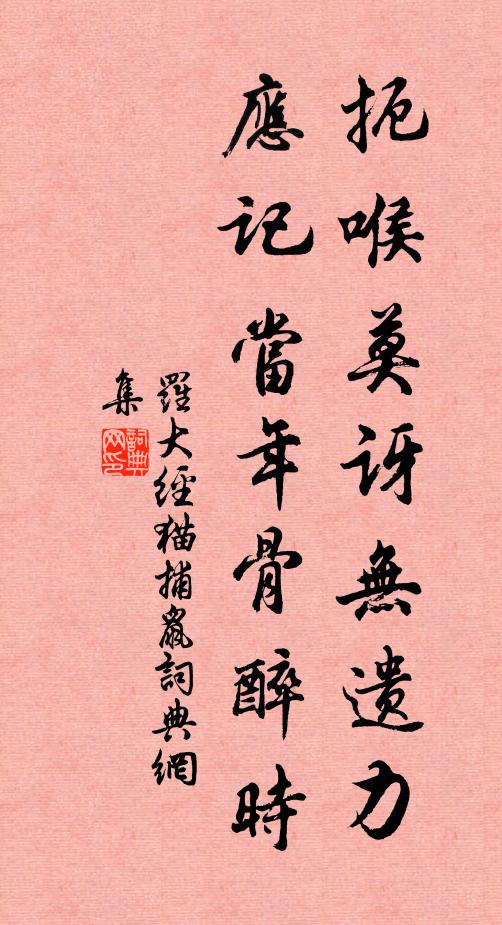 扼喉莫讶無遗力
應记當年骨醉時
羅大經猫捕鼠詞典網
集
詞典網印